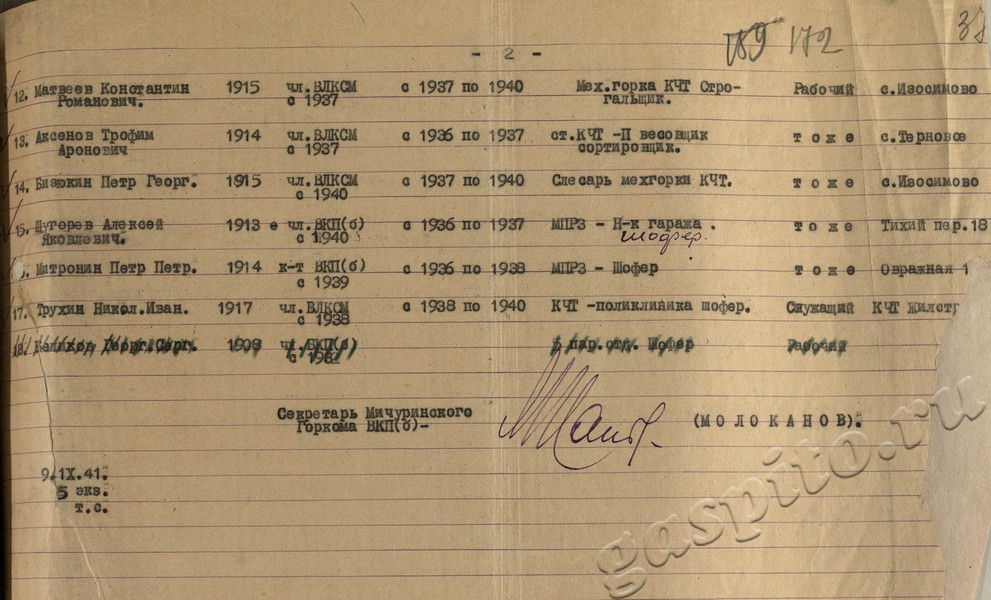 189 172 37
- 2 -
12. Матвеев Константин 1915 чл.ВЛКСМ с 1937 по 1940 Мех.горка КЧТ Стро- Рабочий с.Изосимово
Романович. с 1937 гальщик.
13. Аксенов Трофим 1914 чл.ВЛКСМ с 1936 по 1937 ст.КЧТ -П весовщик т о ж е с.Терновое
Аронович с 1937 сортировщик.
14. Бизюкин Петр Георг. 1915 чл.ВЛКСМ с 1937 по 1940 Слесарь мехгорки КЧТ. т о ж е с.Изосимово
с 1940
15. Шугорев Алексей 1913 е чл.ВКП(б) с 1936 по 1937 МПРЗ - Н-к гаража . т о ж е Тихий пер.18
Яковлевич. с 1940 шофер.
Митронин Петр Петр. 1914 к-т ВКП(б) с 1936 по 1938 МПРЗ - Шофер т о ж е Овражная 1
с 1939
17. Трухин Никол.Иван. 1917 чл.ВЛКСМ с 1938 по 1940 КЧТ -поликлиника шофер. Служащий КЧТ Жилстр
с 1938
18. Георг.Серг. 1908 чл.ВКП(б) пар.отд. Шофер Рабочий
с 1932
Секретарь Мичуринского
Горкома ВКП(б)- (М О Л О К А Н О В).
9.IX.41.
5 экз.
т.с.
gaspito.ru